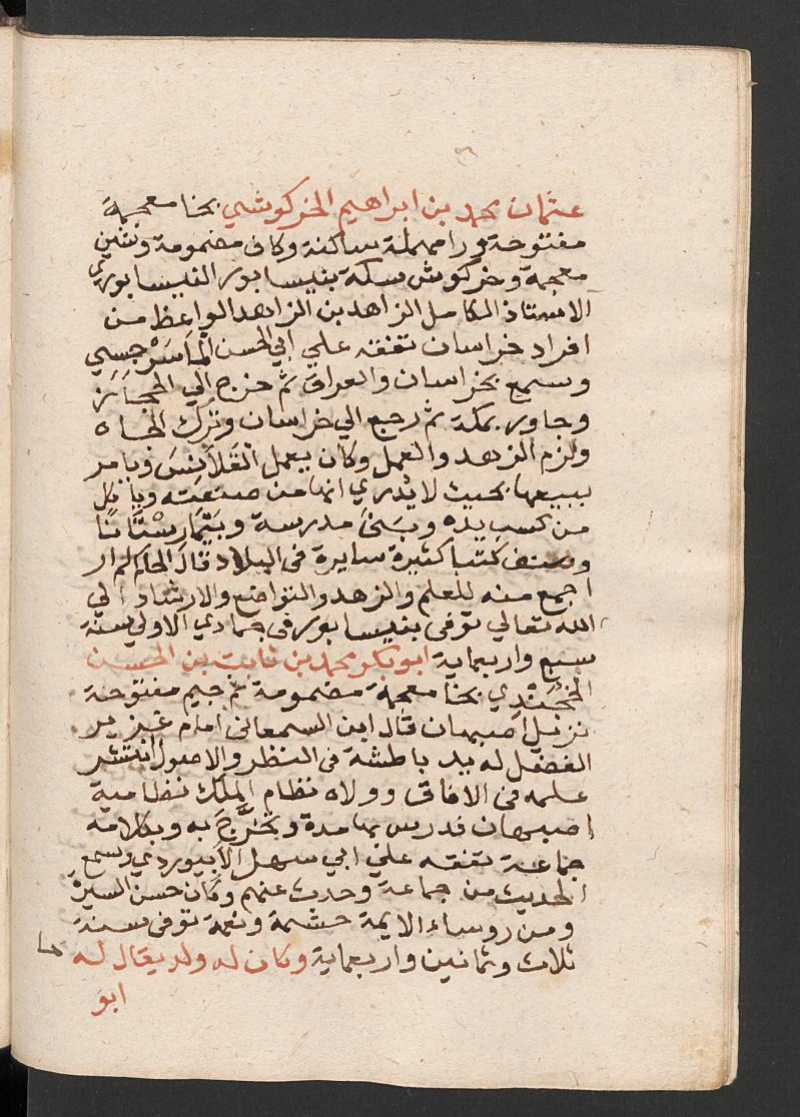 عثمان محمد بن ابراهيم الخركوشي بخا معجمة
مفتوحة ورا مهملة ساكنة وكاف مضمومة وشين
معجمة وخركوش سكة بنيسابور النيسابوري
الاستاذ الكامل الزاهد بن الزاهد الواعظ من
افراد خراسان تفقه علي ابي الحسن الماسَرْجِسِي
وسمع بخراسان والعراق ثم خرج الي الحجاز
وجاور بمكة ثم رجع الي خراسان وتُرك الجاه
ولزم الزهد والعمل وكان يعمل القَلاَنِسَ ويامر
ببيعها بحيث لا يُدْري انها من صنعته وياكل
من كسب يده وبَنيٰ مدرسة وبِيْمَارِسْتَانًا
وصنف كتبا كثيرة سايرة في البلاد قال الحاكم لم ار
اجمع منه للعلم والزهد والتواضع والارشاد الي
الله تعالي توفي بنيسابور في جمادي الاولي سنة
سبع واربعماية ابو بكر محمد بن ثابت بن الحسن
الخُجَنْدِي بخا معجمة مضمومة ثم جيم مفتوحة
نزيل اصبهان قال ابن السمعاني امام غزير
الفضل له يد باطشة في النظر والاصول انتشر
علمه في الافاق وولاه نظام الملك نظامية
اصبهان فدرس بها مدة وتخرَّجَ به وبكلامه
جماعة تفقه علي ابي سهل الاَبيوردي وسمع
الحديث من جماعة وحدث عنهم وكان حسن السيرة
ومن روساء الايمة حشمة ونعمة توفي سنة
ثلاث وثمانين واربعماية وكان له ولد يقال له
ابو